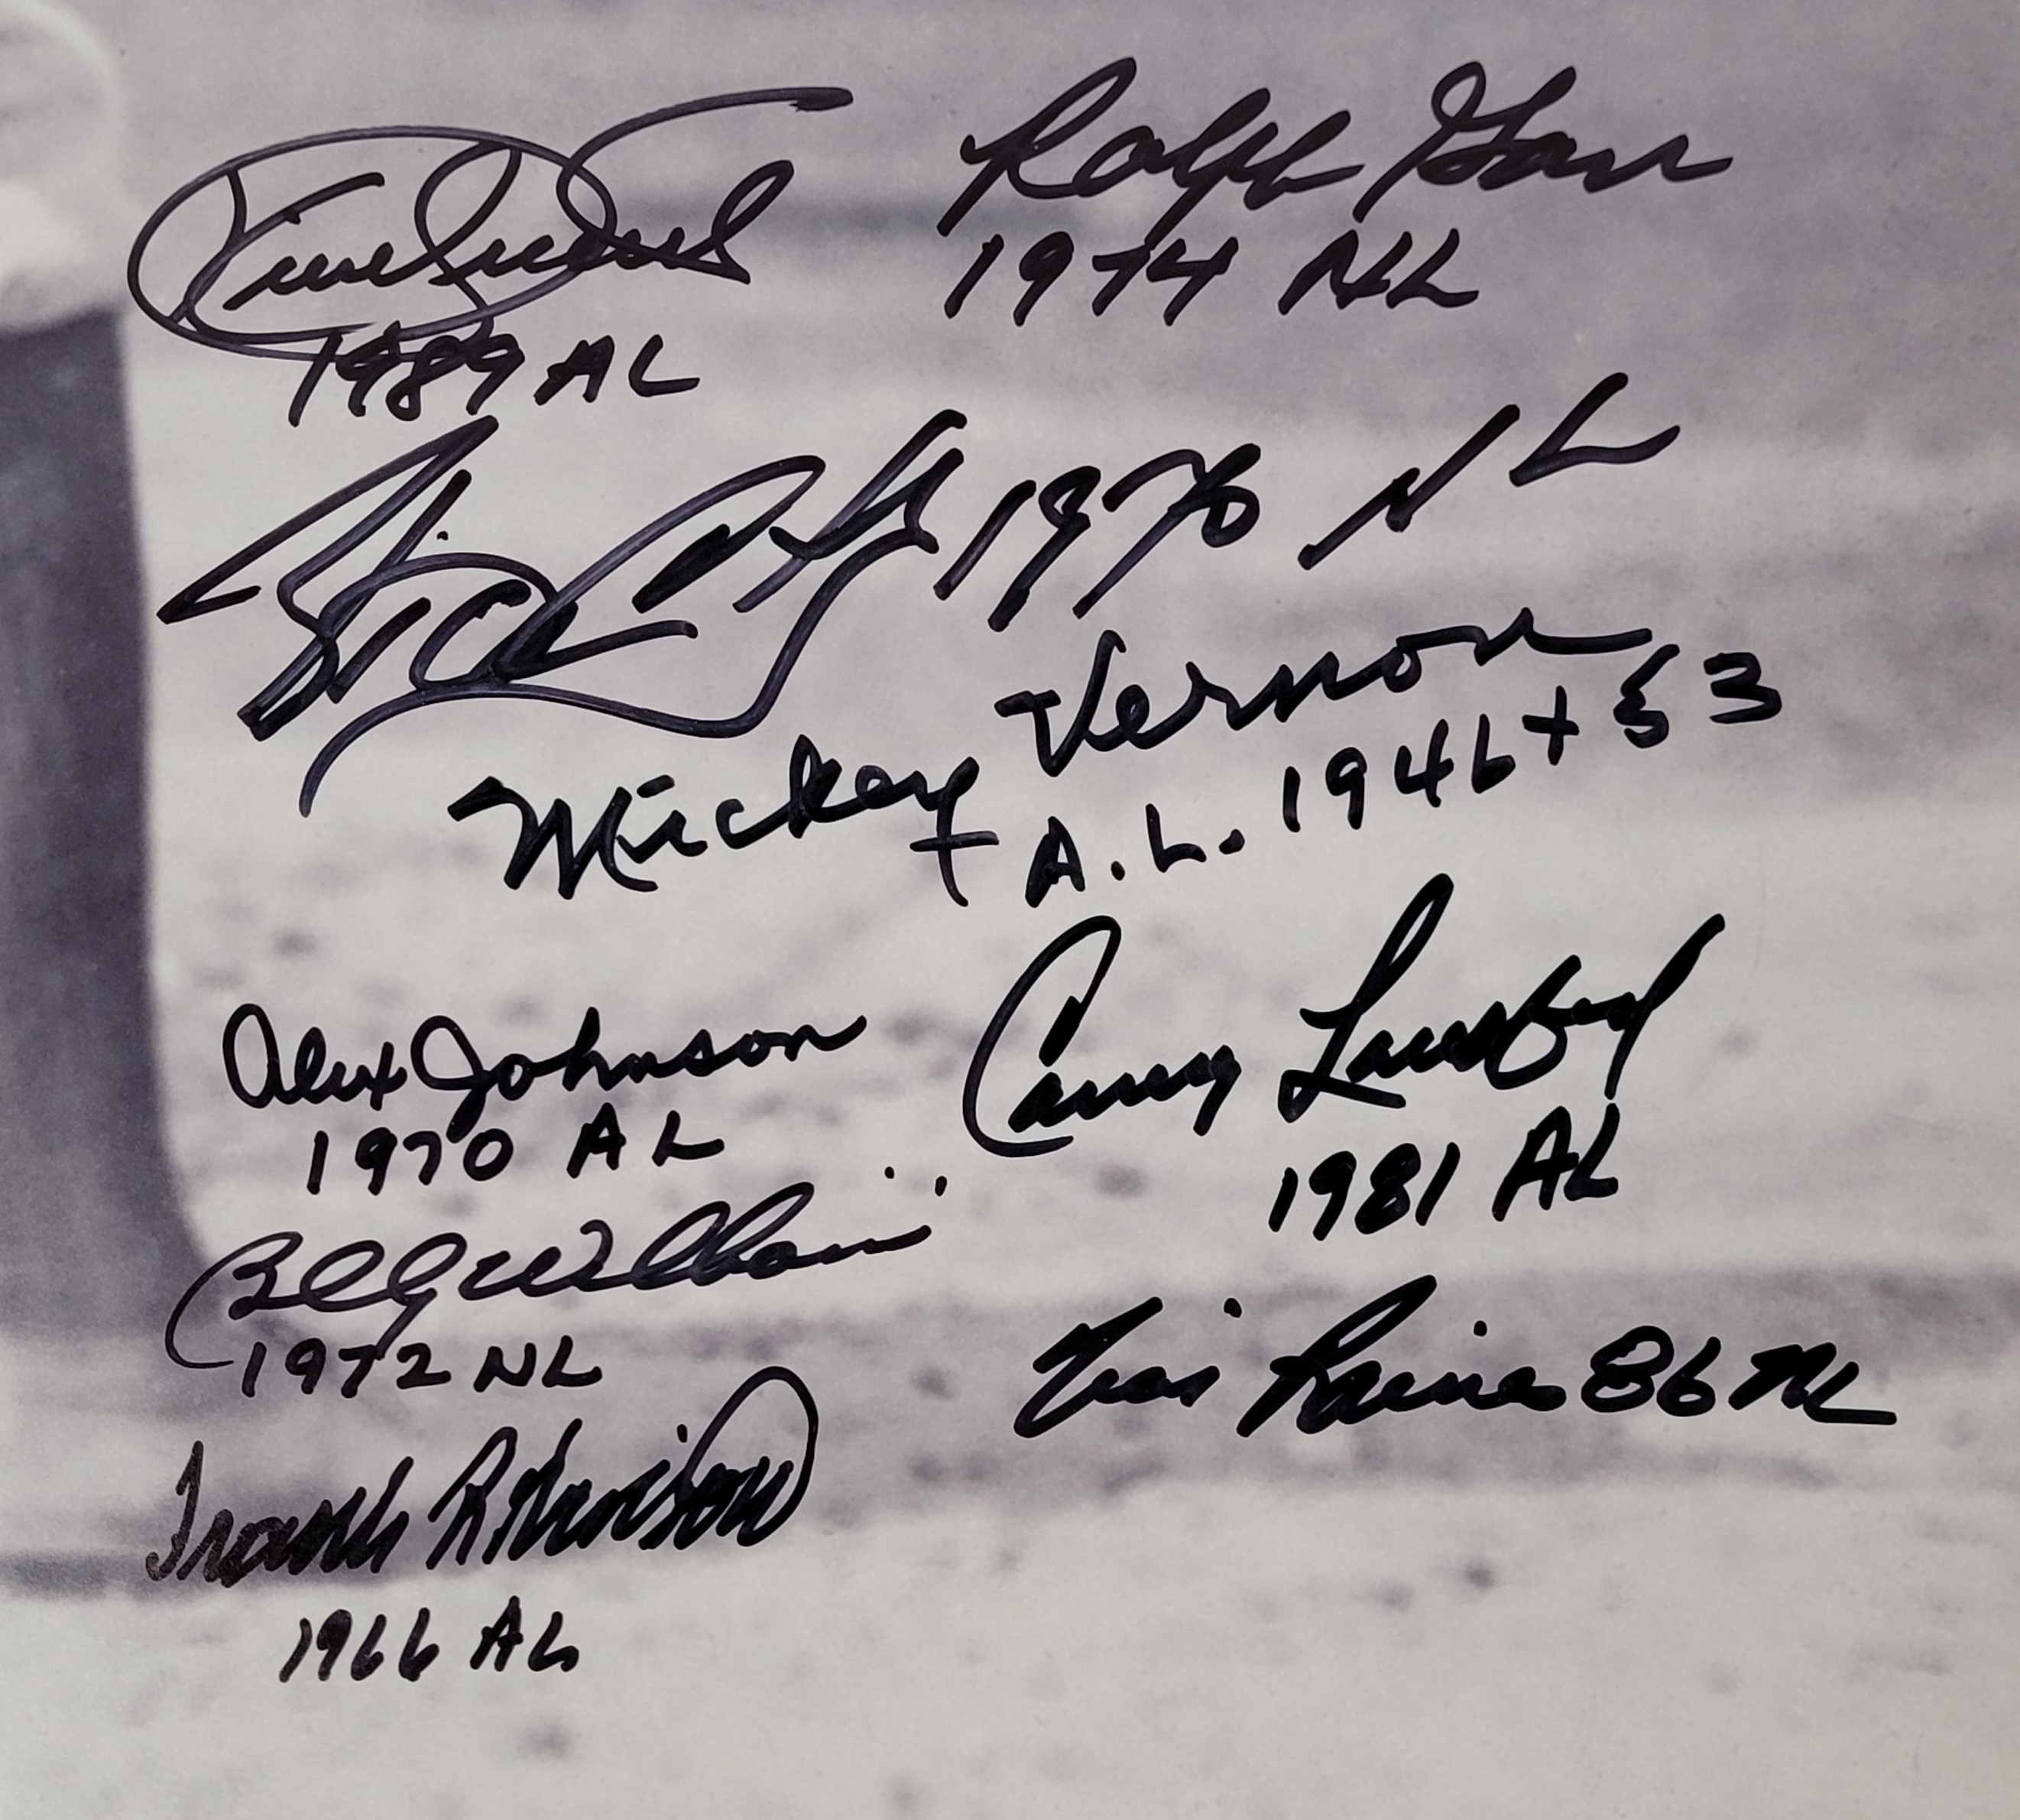 Kirby Puckett
1989 AL
Ralph Garr
1974 NL
Rico Carty 1970 NL
Mickey Vernon
A.L. 1946 + 53
Alex Johnson
1970 AL
Carney Lansford
1981 AL
Billy Williams
1972 NL
Tim Raines 86 NL
Frank Robinson
1966 AL